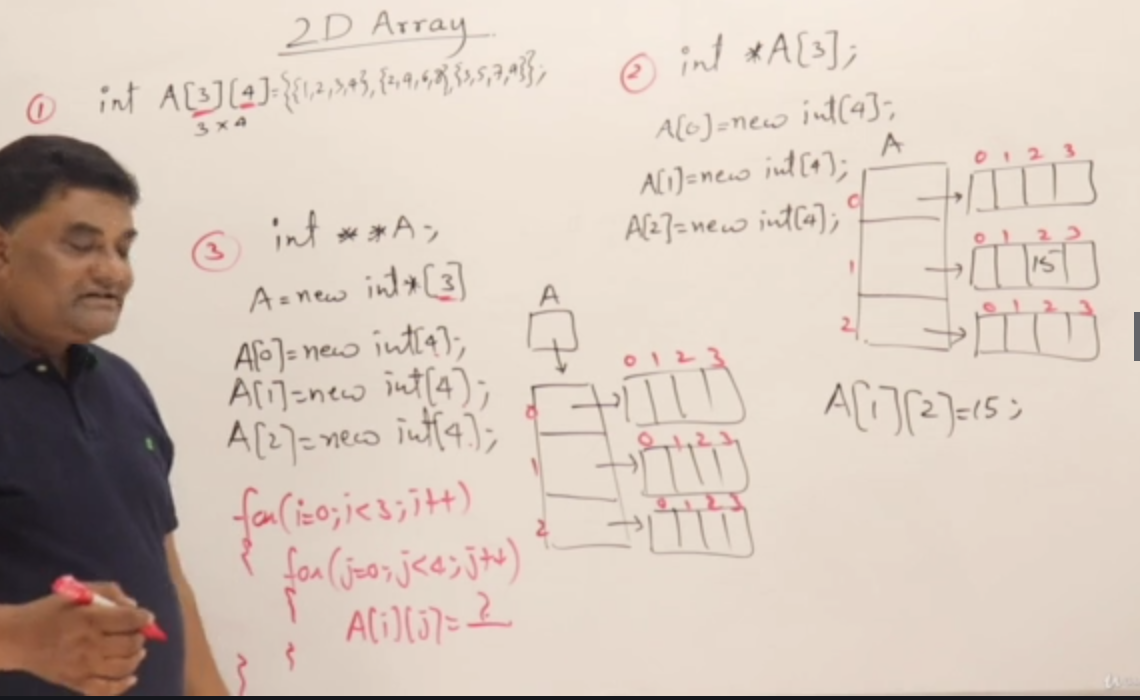 2D Array
① int A[3][4]={{1,2,3,4},{2,4,6,8},{3,5,7,9}};
3 x 4
② int *A[3];
A[0]=new int[4];
A[1]=new int[4];
A[2]=new int[4];
A
0 1 2 3
0
0 1 2 3
1
15
0 1 2 3
2
A[1][2]=15;
③ int **A;
A=new int*[3]
A[0]=new int[4];
A[1]=new int[4];
A[2]=new int[4];
A
0 1 2 3
0
0 1 2 3
1
0 1 2 3
2
for(i=0;i<3;i++)
{
for(j=0;j<4;j++)
{
A[i][j]=?
}
}